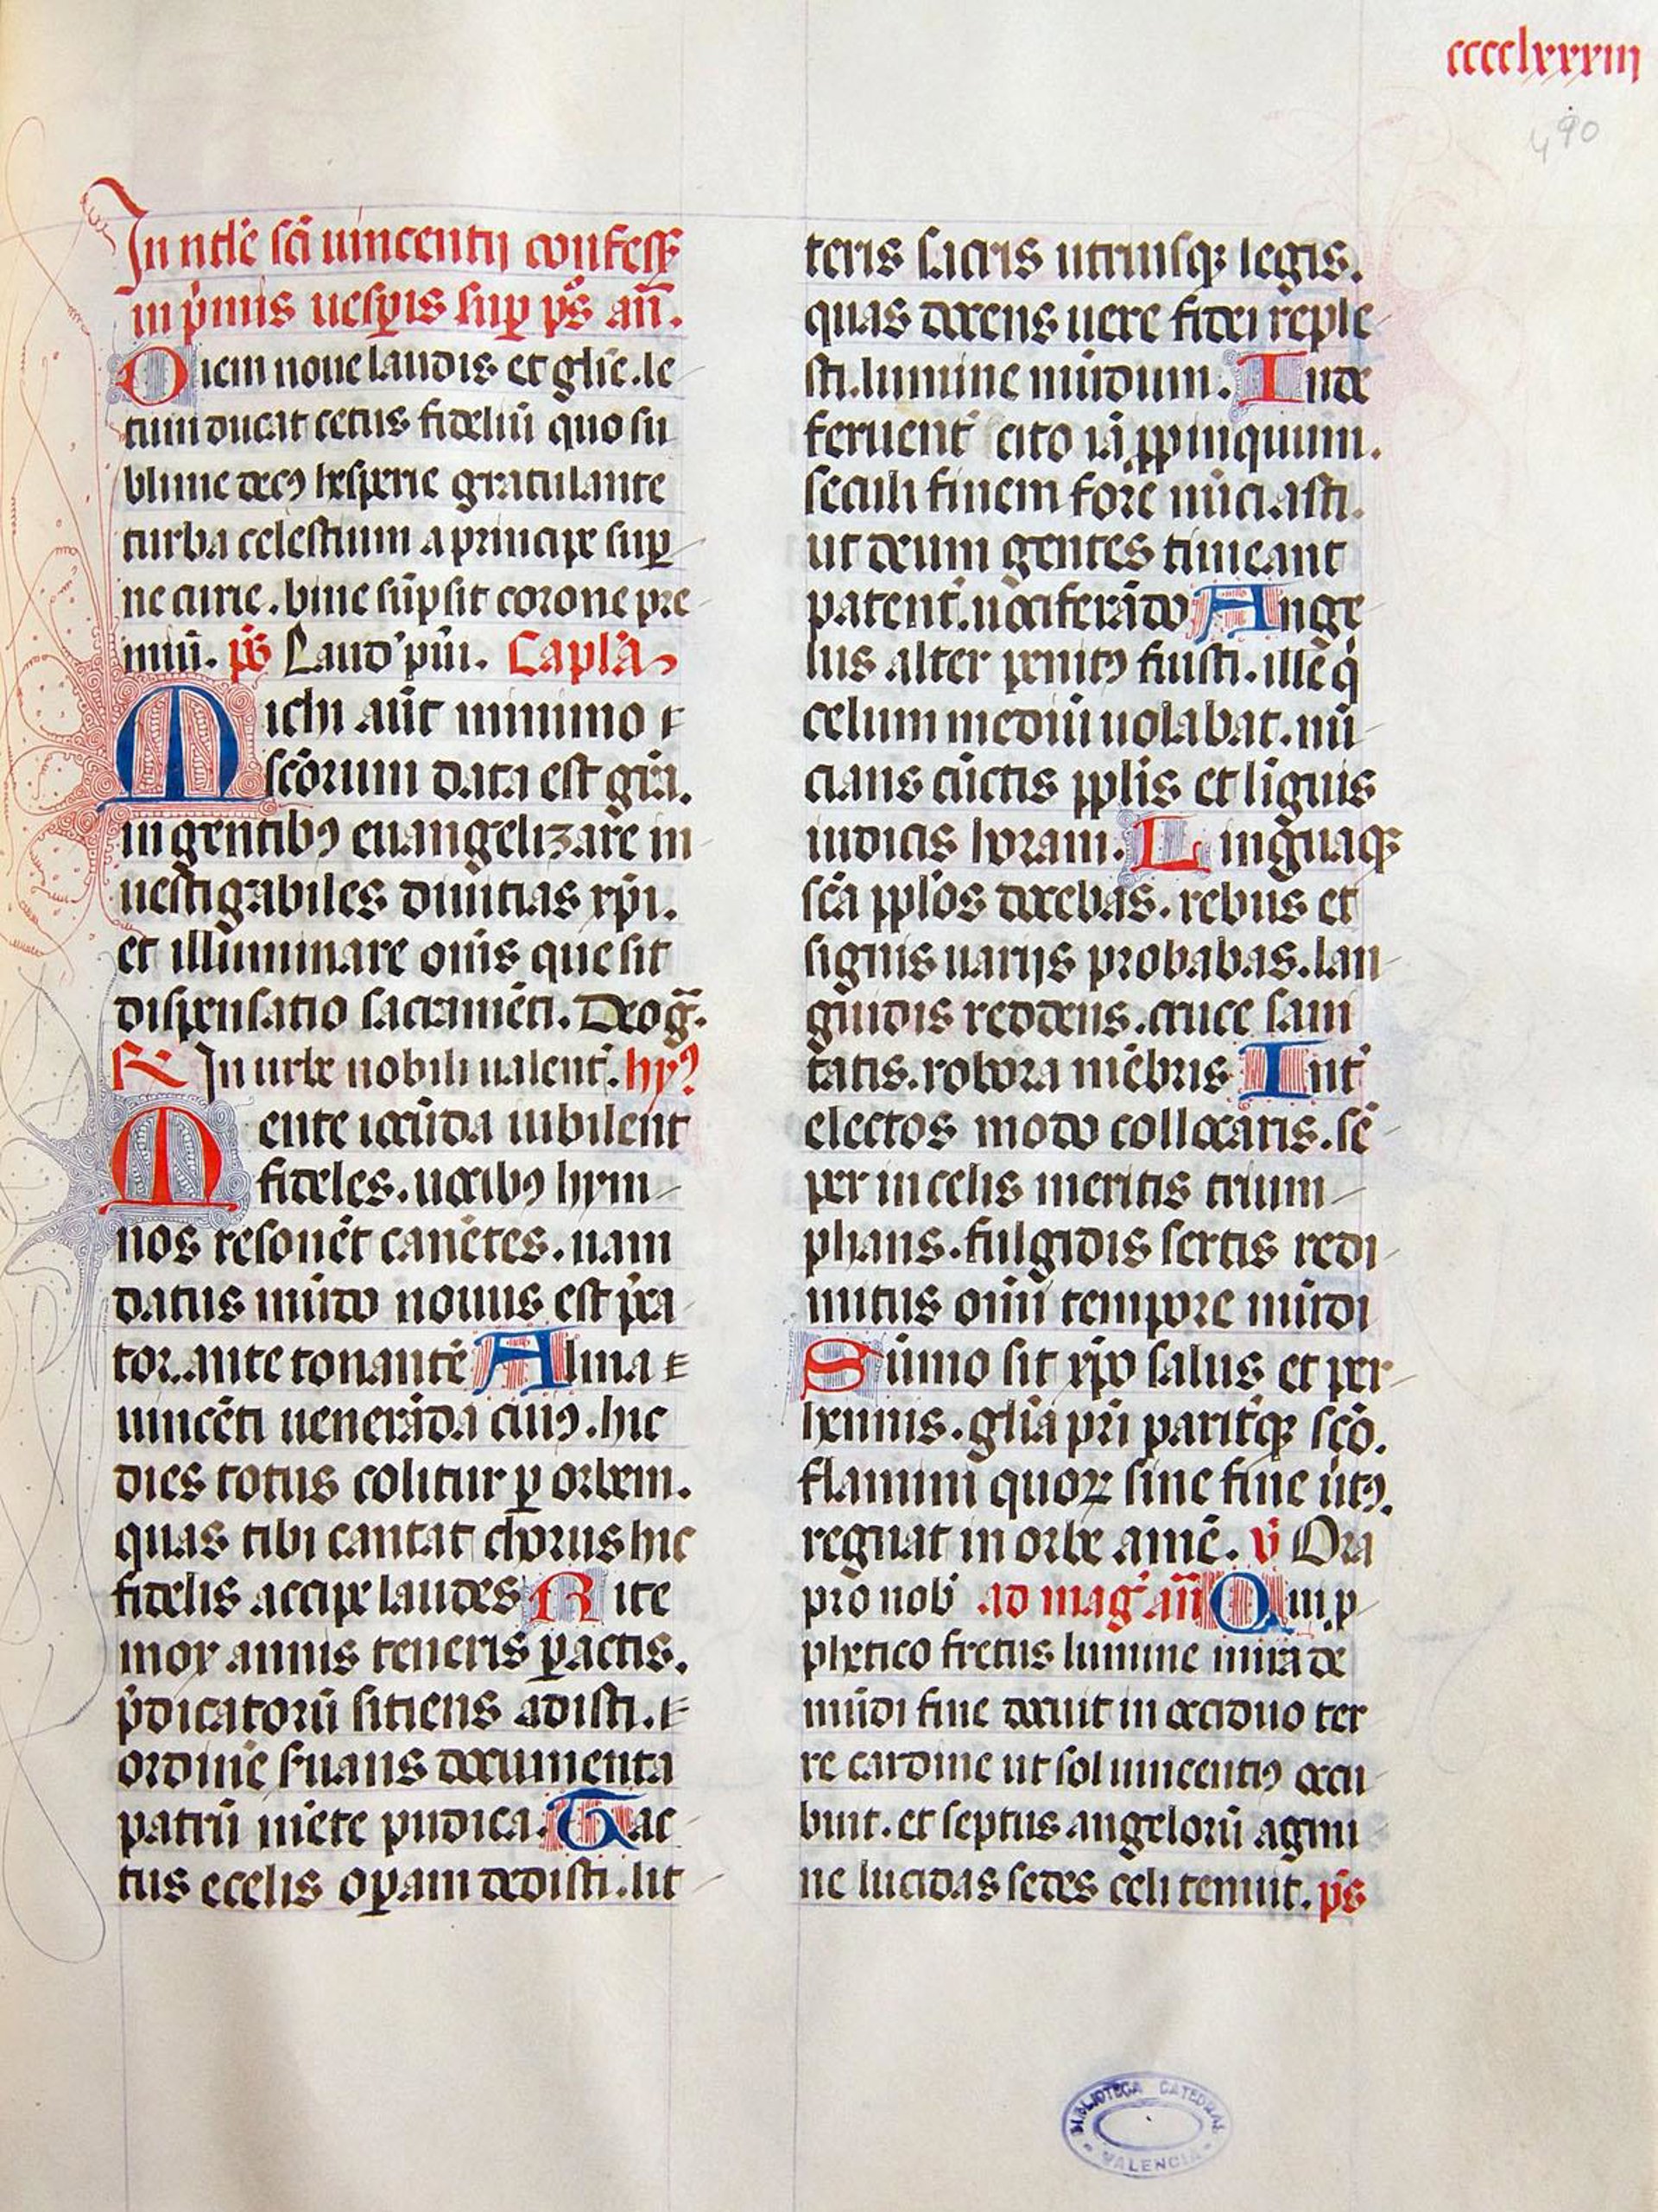 cccclxxxiiij
490
In ntl'e scī uincentij confess
in pͥmis uesꝑis suꝑ ps̄ añ.
Diem noue laudis et gl̄ie. le
tum ducat cetus fideliū quo su
blime decꝰ hesperie gratulante
turba celestium a principe suꝑ
ne curie. bine sūpsit corone pre
miū. ps̄ Laud' pūi. Capl'a
Michi aūt minimo
scōrum data est grā.
in gentibꝰ euangelizare in
uestigabiles diuitias xp̄i.
et illuminare om̄s que sit
dispensatio sacramēti. Deo g̃.
℟ In urbe nobili ualent̄. hyꝰ
Mente iocūda iubilent
fideles. uocibꝰ hym
nos resonēt canētes. nam
datus mūdo nouus est pͥca
tor. ante tonantē Alma
uincēti uenerāda cuiꝰ. hic
dies totus colitur ꝑ orbem.
quas tibi cantat chorus hic
fidelis accipe laudes Rite
mox annis teneris ꝑactis.
p̄dicatorū sitiens adisti.
ordinē suans documenta
patrū mēte pudica. Tac
tus ecelis oꝑam dedisti. lit
teris sacris utriusqꝫ legis.
quas docens uere fidei reple
sti. lumine mūdum. Inde
feruent̄ cito iā ꝓpinquum.
seculi finem fore nūciasti.
ut deum gentes timeant
patent̄. uociferādo Ange
lus alter penitꝰ fuisti. ille qͥ
celum mediū uolabat. nū
cians cūctis pplīs et līguis
iudicis horam. Linguaqꝫ
scā pplōs docebas. rebus et
signis uarijs probabas. lan
guidis reddens. cruce sani
tatis. robora mēbris Int̄
electos modo collocaris. sē
per in celis meritis trium
phans. fulgidis sertis redi
mitus omī tempore mūdi
Sūmo sit xp̄o salus et per
hennis. gl̄ia pr̄i paritqꝫ scō.
flamini quoꝝ sine fine ūtꝰ.
regnat in orbe amē. ℣ Ora
pro nob̄ ad mag̃ añ Qui p
phetico fretus lumine mira de
mūdi fine docuit in occiduo ter
re cardine ut sol uincentiꝰ occu
buit. et septus angelorū agmi
ne lucidas sedes celi tenuit. ps̄
BIBLIOTECA CATEDRAL
VALENCIA